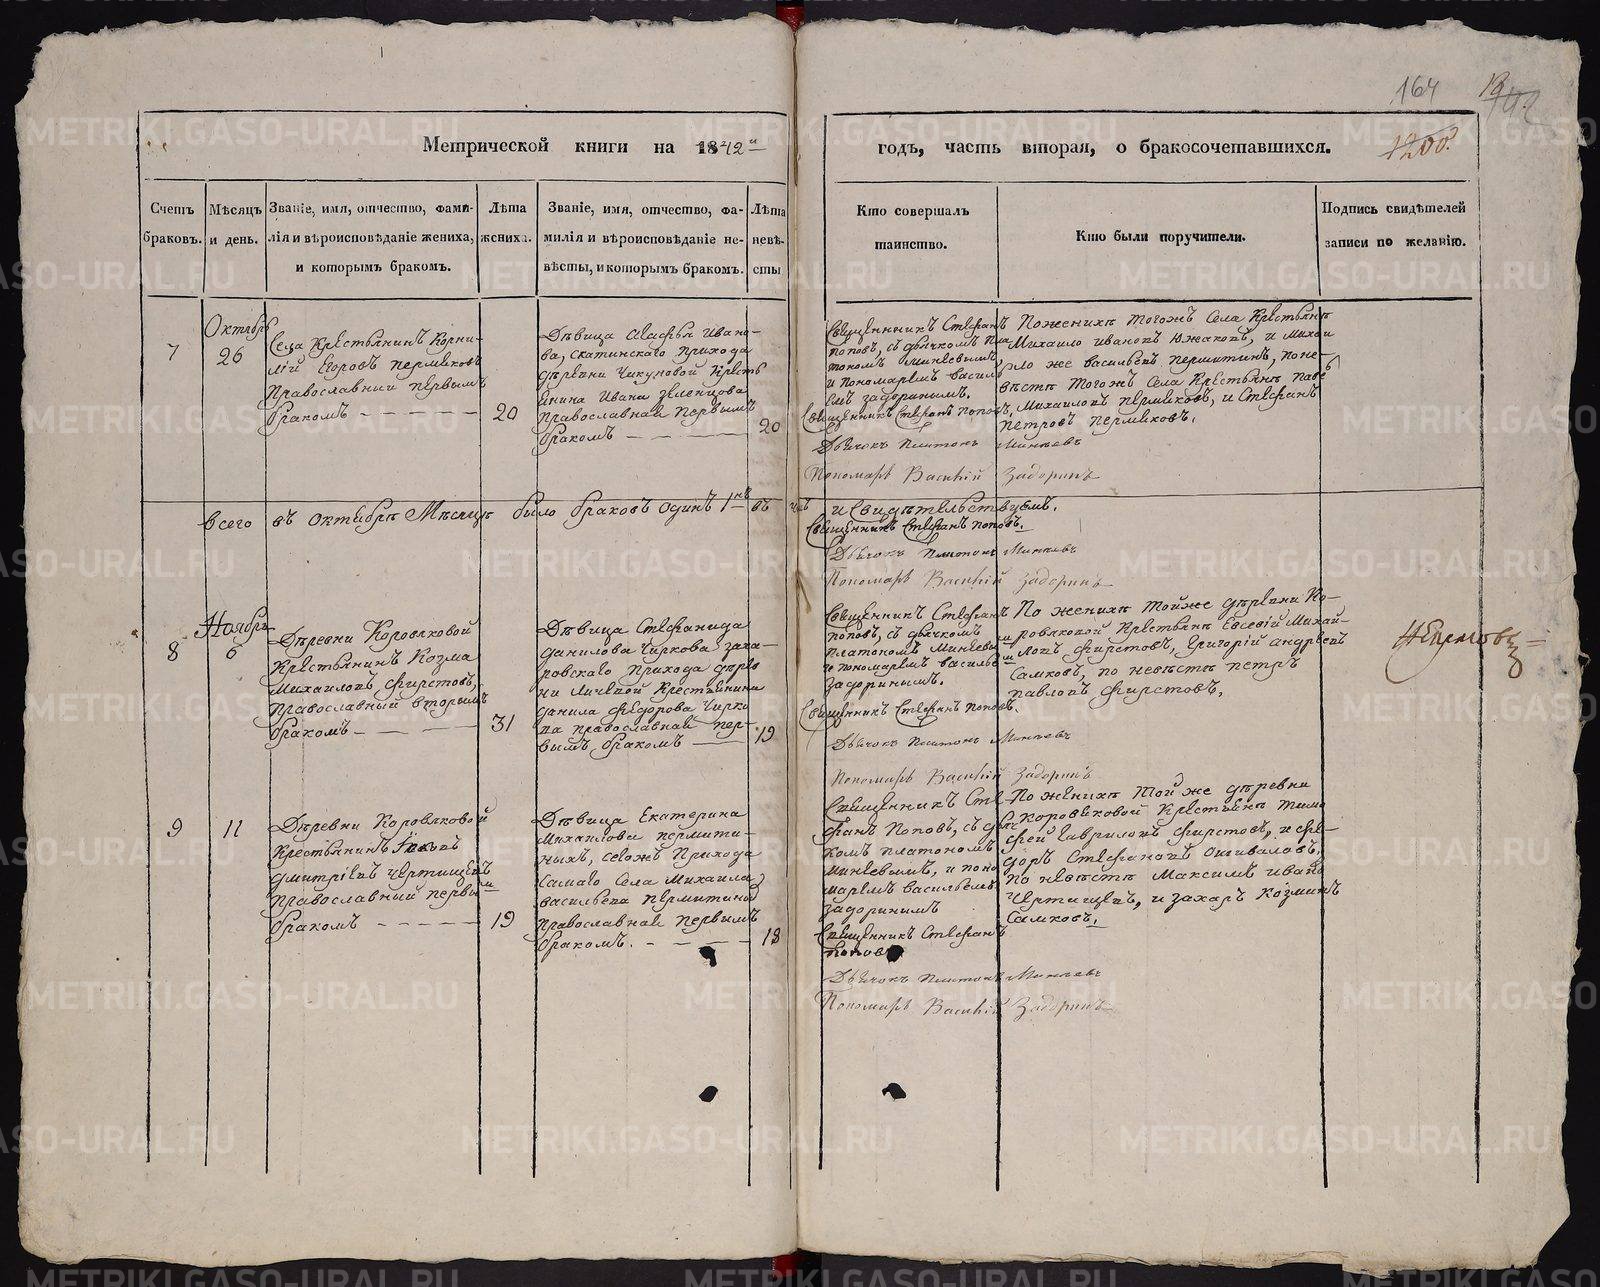 164
1200.
Метрической книги на 1842й
годъ, часть вторая, о бракосочетавшихся.
Счетъ
браковъ.
Мѣсяцъ
и день.
Званіе, имя, отчество, фами-
лія и вѣроисповѣданіе жениха,
и которымъ бракомъ.
Лѣта
жениха.
Званіе, имя, отчество, фа-
милія и вѣроисповѣданіе не-
вѣсты, и которымъ бракомъ.
Лѣта
невѣ-
сты
Кто совершалъ
таинство.
Кто были поручители.
Подпись свидѣтелей
записи по желанію.
7
Октябрь
26
Села Крестьянинъ Корни-
лій Егоровъ Пермяковъ
Православный первымъ
бракомъ
20
Дѣвица Агафья Ивано-
ва, Скатинскаго прихода
деревни Чикуновой кресть
янина Ивана Зеленцова
православная первымъ
бракомъ
20
Священникъ Стефанъ
Поповъ, съ дьячкомъ Пла
тономъ Минѣевымъ,
и Пономаремъ Василь
емъ Задоринымъ.
Священникъ Стефанъ Поповъ,
Дьячокъ Платонъ Минѣевъ
Пономарь Василій Задоринъ
По женихѣ тогожъ Села Крестьянѣ
Михайло Ивановъ Южаковъ, и Михаи
ло же Васильевъ Пермитинъ, по не-
вѣстѣ тогожъ Села Крестьянѣ Павелъ
Михайловъ Пермяковъ, и Стефанъ
Петровъ Пермяковъ.
Всего въ Октябрѣ Мѣсяцѣ было браковъ одинъ 1нъ въ чемъ и Свидѣтельствуемъ.
Священникъ Стефанъ Поповъ.
Дьячокъ Платонъ Минѣевъ
Пономарь Василій Задоринъ
8
Ноябрь
6
Деревни Коровяковой
Крестьянинъ Козма
Михайловъ Фирстовъ,
Православный вторымъ
бракомъ
31
Дѣвица Стефанида
Данилова Чиркова Заха-
ровскаго Прихода дерев
ни Личевой Крестьянина
Данила Федорова Чирко
ва православная пер-
вымъ бракомъ
19
Священникъ Стефанъ
Поповъ, съ дьячкомъ
Платономъ Минѣевымъ
и пономаремъ Василье
Задоринымъ.
Священникъ Стефанъ Поповъ.
Дьячокъ Платонъ Минѣевъ
Пономарь Василій Задоринъ
По женихѣ тойже деревни Ко-
ровяковой Крестьянѣ Евсевій Михай-
ловъ Фирстовъ, Григорій Андреевъ
Самковъ, по невѣстѣ Петръ
Павловъ Фирстовъ.
9
11
Деревни Коровяковой
Крестьянинъ Яковъ
Дмитріевъ Чертищевъ
Православный первымъ
бракомъ
19
Дѣвица Екатерина
Михайлова Пермити-
ныхъ, сегожъ Прихода
самаго Села Михаила
Васильева Пермитина
православная первымъ
бракомъ.
18
Священникъ Сте-
фанъ Поповъ, съ дьяч
комъ Платономъ
Минѣевымъ, и поно
маремъ Васильемъ
Задоринымъ
Священникъ Стефанъ
Поповъ
Дьячокъ Платонъ Минѣевъ
Пономарь Василій Задоринъ
По женихѣ той же деревни
Коровяковой Крестьянѣ Тимо
фей Гавриловъ Фирстовъ, и Фе-
доръ Стефановъ Ошиваловъ,
по невѣстѣ Максимъ Ивано
Чертищевъ, и Захаръ Козминъ
Самковъ.
METRIKI.GASO-URAL.RU